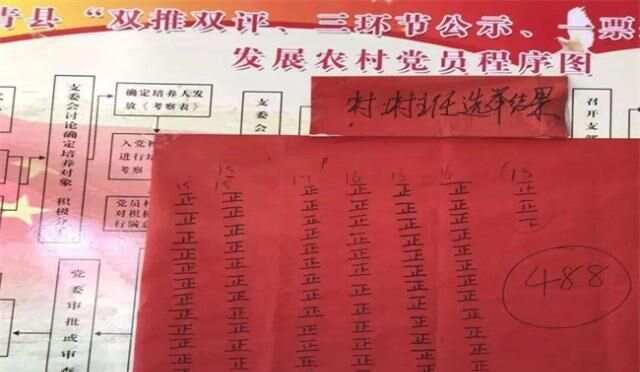 青县“双推双评、三环节公示、一票
发展农村党员程序图
支委会讨论确定培养对象
积极分
确定培养人发
放《考察表》
入党
进行培
考察
党员
对积极
行
党委审批或审
支委会
召开支部
村 村主任选举结果
15 15 17 16 15 16 15
正 正 正 正 正 正 正
正 正 正 正 正 正 正
正 正 正 正 正 正
正 正 正 正 正 正
正 正 正 正 正 正
正 正 正 正 正 正
正 正 正 正 正 正
正 正 正 正 正 正
正 正 正 正 正 正
488